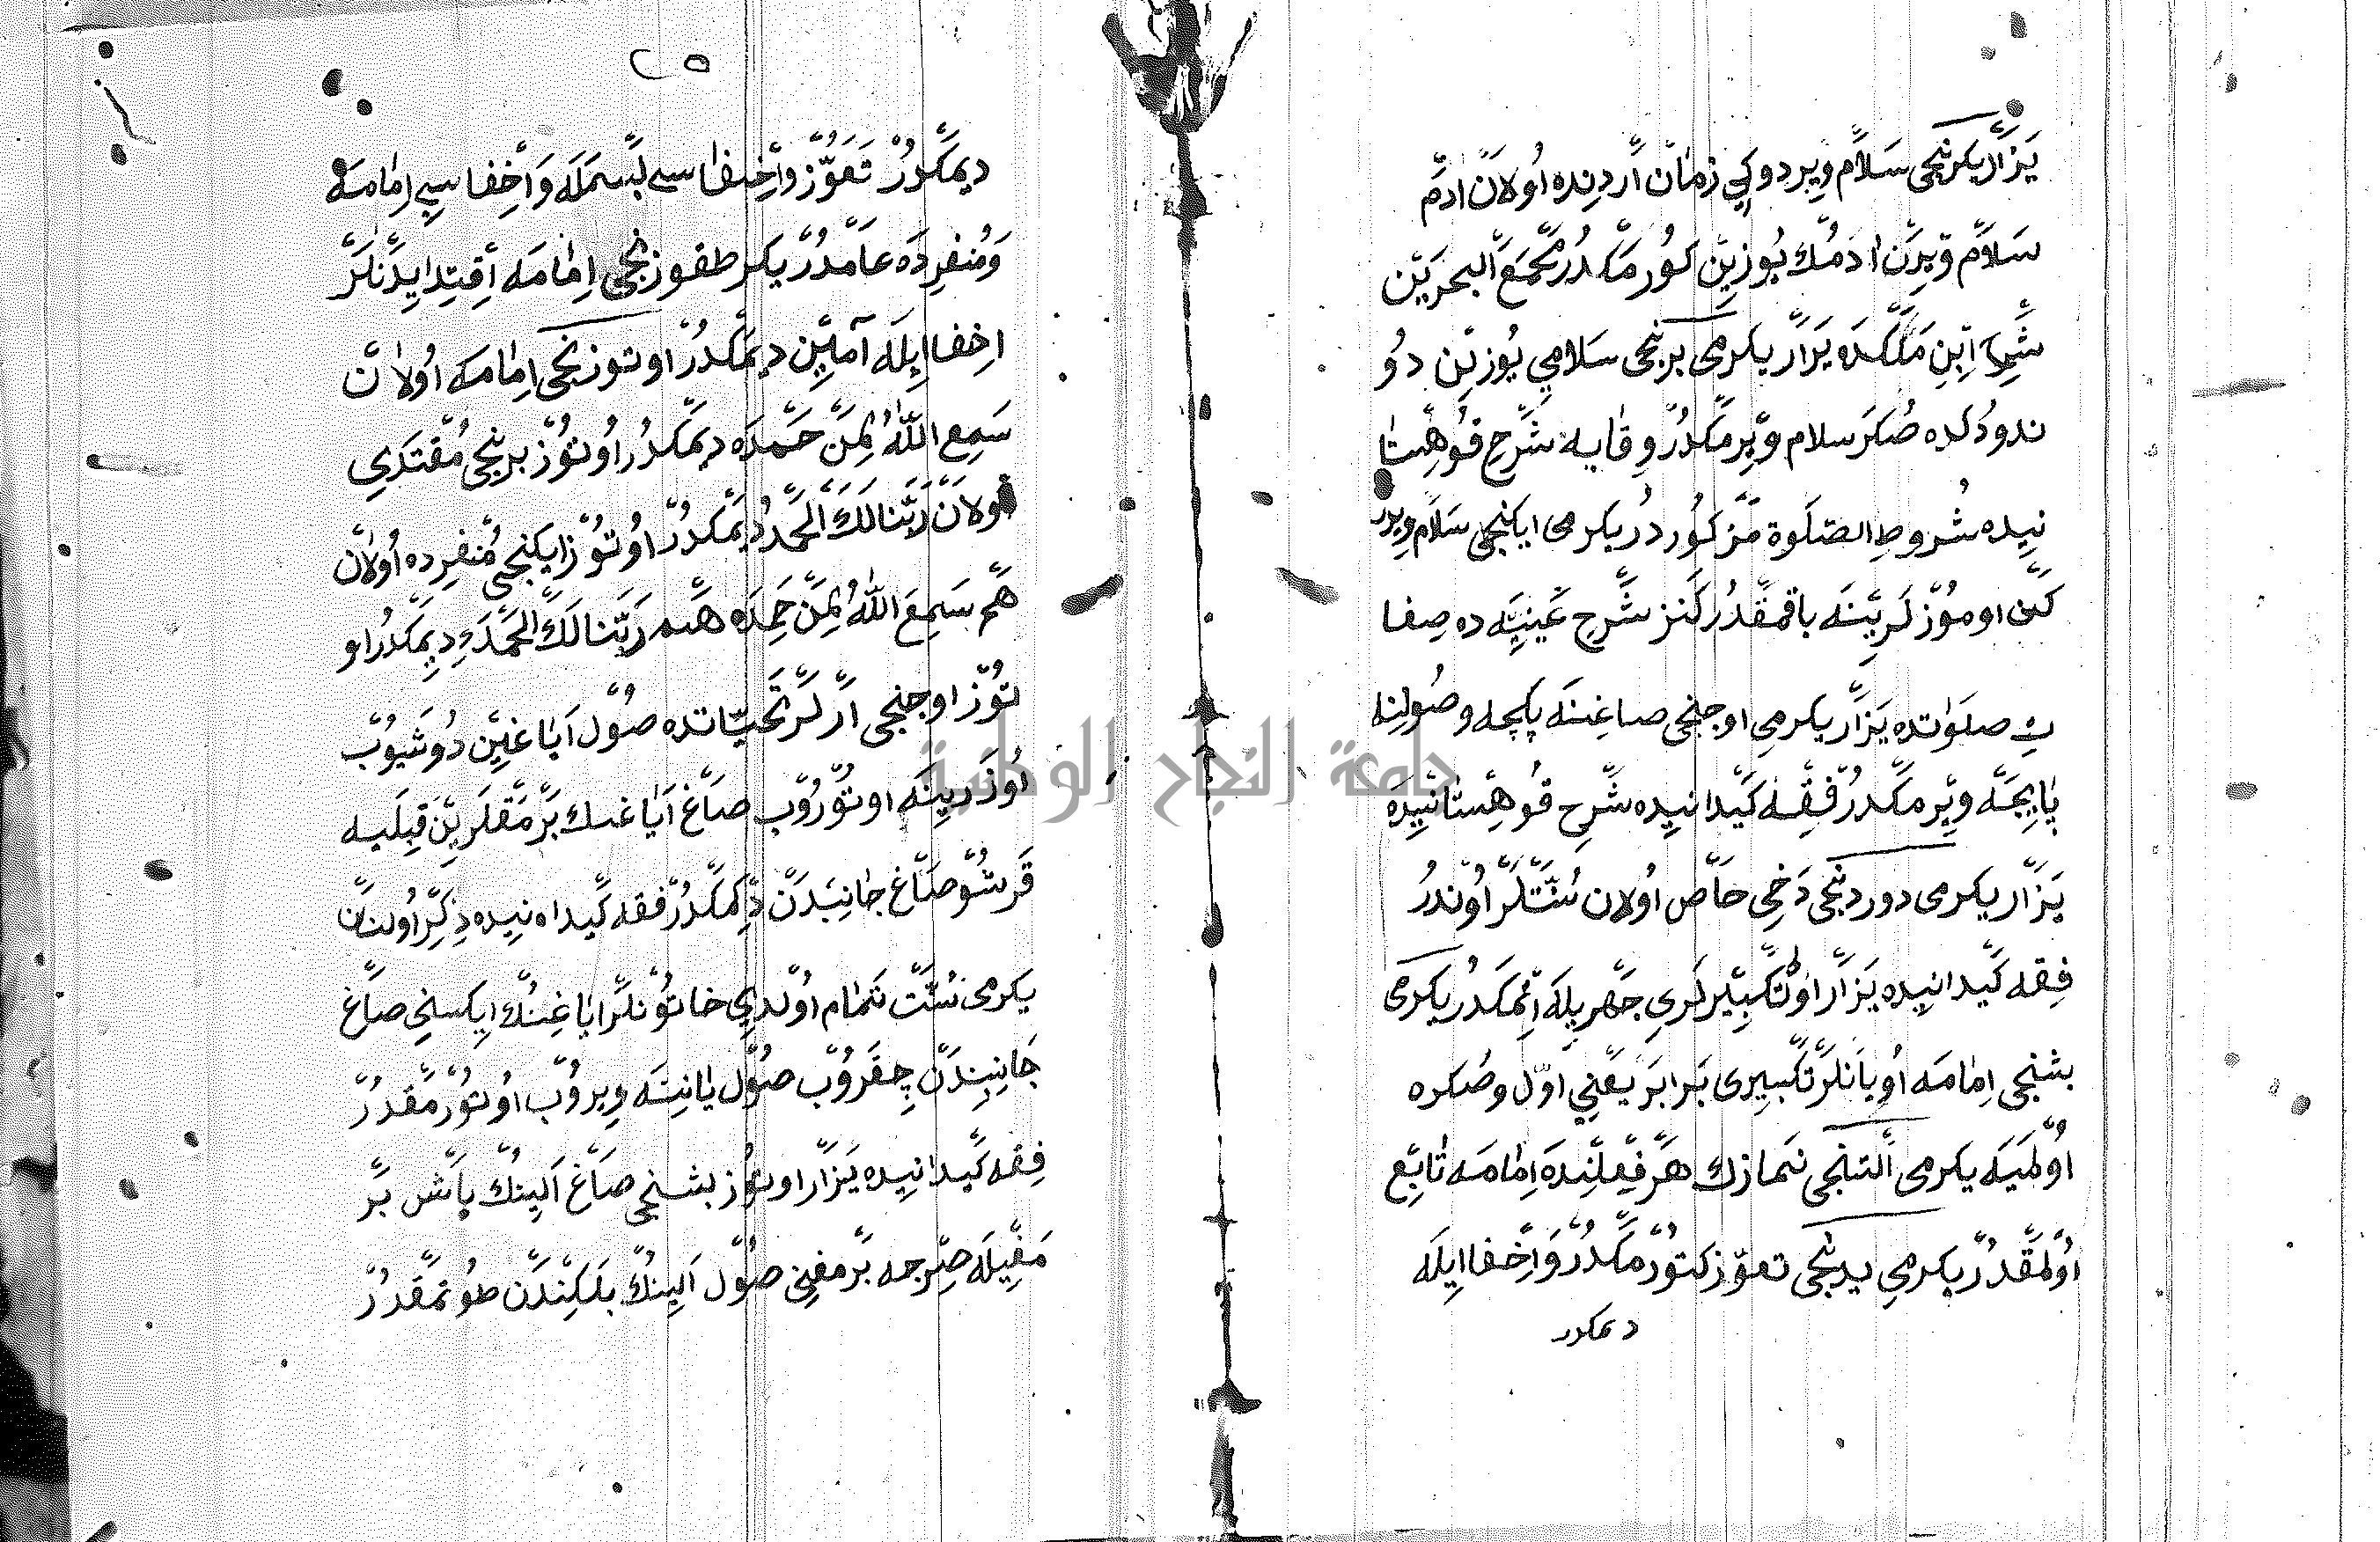 يَزَار يكرنجى سَلام ويردوكى زمان آردنده اولان ادم
سَلام ويرن ادمك يوزين كورمكدر مجمع البحرين
شرح ابن ملكده يزار يكرمى برنجى سلامى يوزين دو
ندودكده صكر سلام ويرمكدر وقايه شرح قوهستا
نيده شروط الصلوة مذكوردر يكرمى ايكنجى سلام ويرر
كن اوموزلرينه باقمقدر كنز شرح عينيه ده صفا
ت صلواتده يزار يكرمى اوجنجى صاغنه پكچه وصولنه
پايجه ويرمكدر فقه كيدانيده شرح قوهستانيده
يزار يكرمى دوردنجى دخى خاص اولان سنتلر اوندر
فقه كيدانيده يزار اول تكبيرلرى جهريله اتمكدر يكرمى
بشنجى امامه اويانلر تكبيرى برابر يعنى اول وصكره
اولميه يكرمى التنجى نمازك هر فعلنده امامه تابع
اولمقدر يكرمى يدنجى تعوذ كتورمكدر واخفا ايله
ديمكدر
٢٥
ديمكدر تعوذ واخفاسى بسمله واخفاسى امامه
ومنفرده عامدر يكرمى طقوزنجى امامه اقتدا ايدنلر
اخفا ايله آمين ديمكدر اوتوزنجى امامه اولان
سمع الله لمن حمده ديمكدر اوتوز برنجى مقتدى
اولان ربنا لك الحمد ديمكدر اوتوز ايكنجى منفرده اولان
هم سمع الله لمن حمده هم ربنا لك الحمد ديمكدر او
توز اوجنجى ارلر تحياتده صول اياغين دوشيوب
اوزرينه اوتوروب صاغ اياغك برمقلرين قبليه
قرشو صاغ جانبدن دكمكدر فقه كيدانيده ذكر اولنان
يكرمى سنت تمام اولدى خاتونلر اياغنك ايكسنى صاغ
جانبندن چقروب صول يانينه ويروب اوتورمقدر
فقه كيدانيده يزار اوتوز بشنجى صاغ الينك باش بر
مغيله صرجه برمغنى صول الينك بلكندن طوتمقدر
جامعة النجاح الوطنية